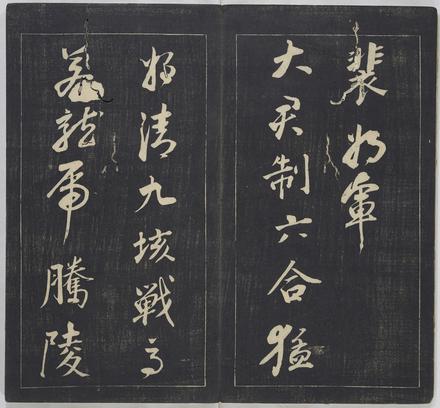 裴将軍
大君制六合猛
将清九垓戦馬
若龍虎騰陵